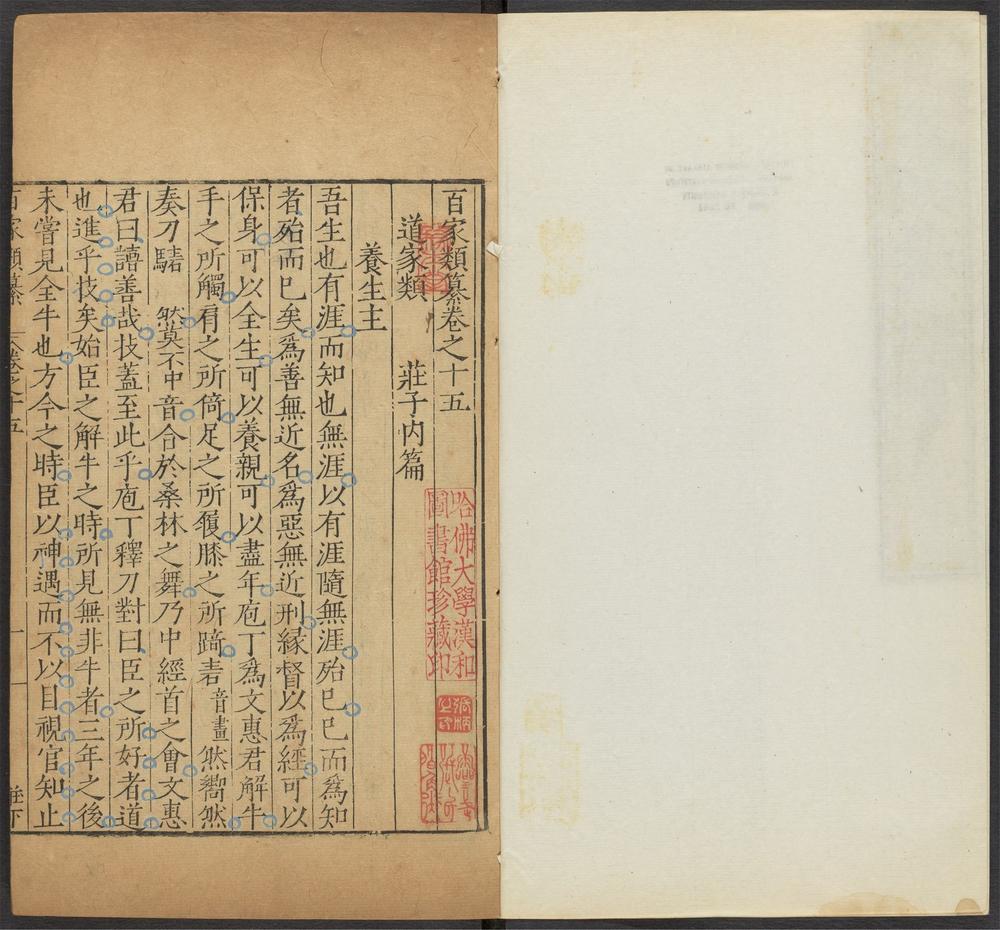 百家類纂卷之十五
道家類 莊子內篇
養生主
吾生也有涯而知也無涯以有涯隨無涯殆已已而爲知
者殆而已矣爲善無近名爲惡無近刑緣督以爲經可以
保身可以全生可以養親可以盡年庖丁爲文惠君解牛
手之所觸肩之所倚足之所履膝之所踦砉音畫然嚮然
奏刀騞然莫不中音合於桑林之舞乃中經首之會文惠
君曰譆善哉技蓋至此乎庖丁釋刀對曰臣之所好者道
也進乎技矣始臣之解牛之時所見無非牛者三年之後
未嘗見全牛也方今之時臣以神遇而不以目視官知止
百家類纂 卷之十五 一
哈佛大學漢和
圖書館珍藏印